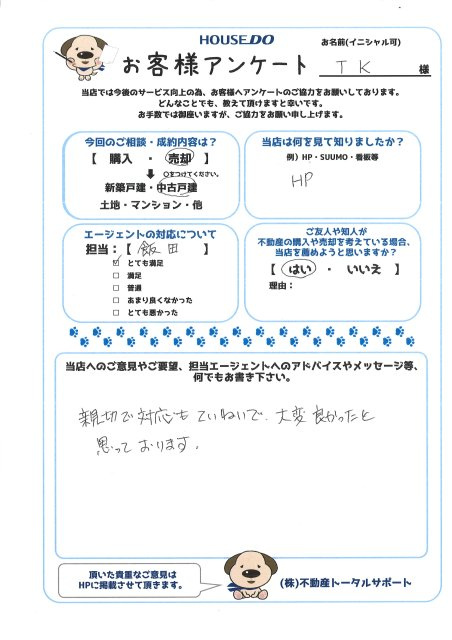 HOUSE DO
お名前(イニシャル可)
お客様アンケート
T K 様
当店では今後のサービス向上の為、お客様へアンケートのご協力をお願いしております。
どんなことでも、教えて頂けますと幸いです。
お手数では御座いますが、ご協力をお願い申し上げます。
今回のご相談・成約内容は?
【 購入 ・ 売却 】
○をつけてください。
新築戸建・中古戸建
土地・マンション・他
当店は何を見て知りましたか?
例）HP・SUUMO・看板等
HP
エージェントの対応について
担当：【 飯田 】
☑ とても満足
□ 満足
□ 普通
□ あまり良くなかった
□ とても悪かった
ご友人や知人が
不動産の購入や売却を考えている場合、
当店を薦めようと思いますか?
【 はい ・ いいえ 】
理由：
当店へのご意見やご要望、担当エージェントへのアドバイスやメッセージ等、
何でもお書き下さい。
親切で対応もていねいで、大変良かったと
思っております。
頂いた貴重なご意見は
HPに掲載させて頂きます。
(株)不動産トータルサポート